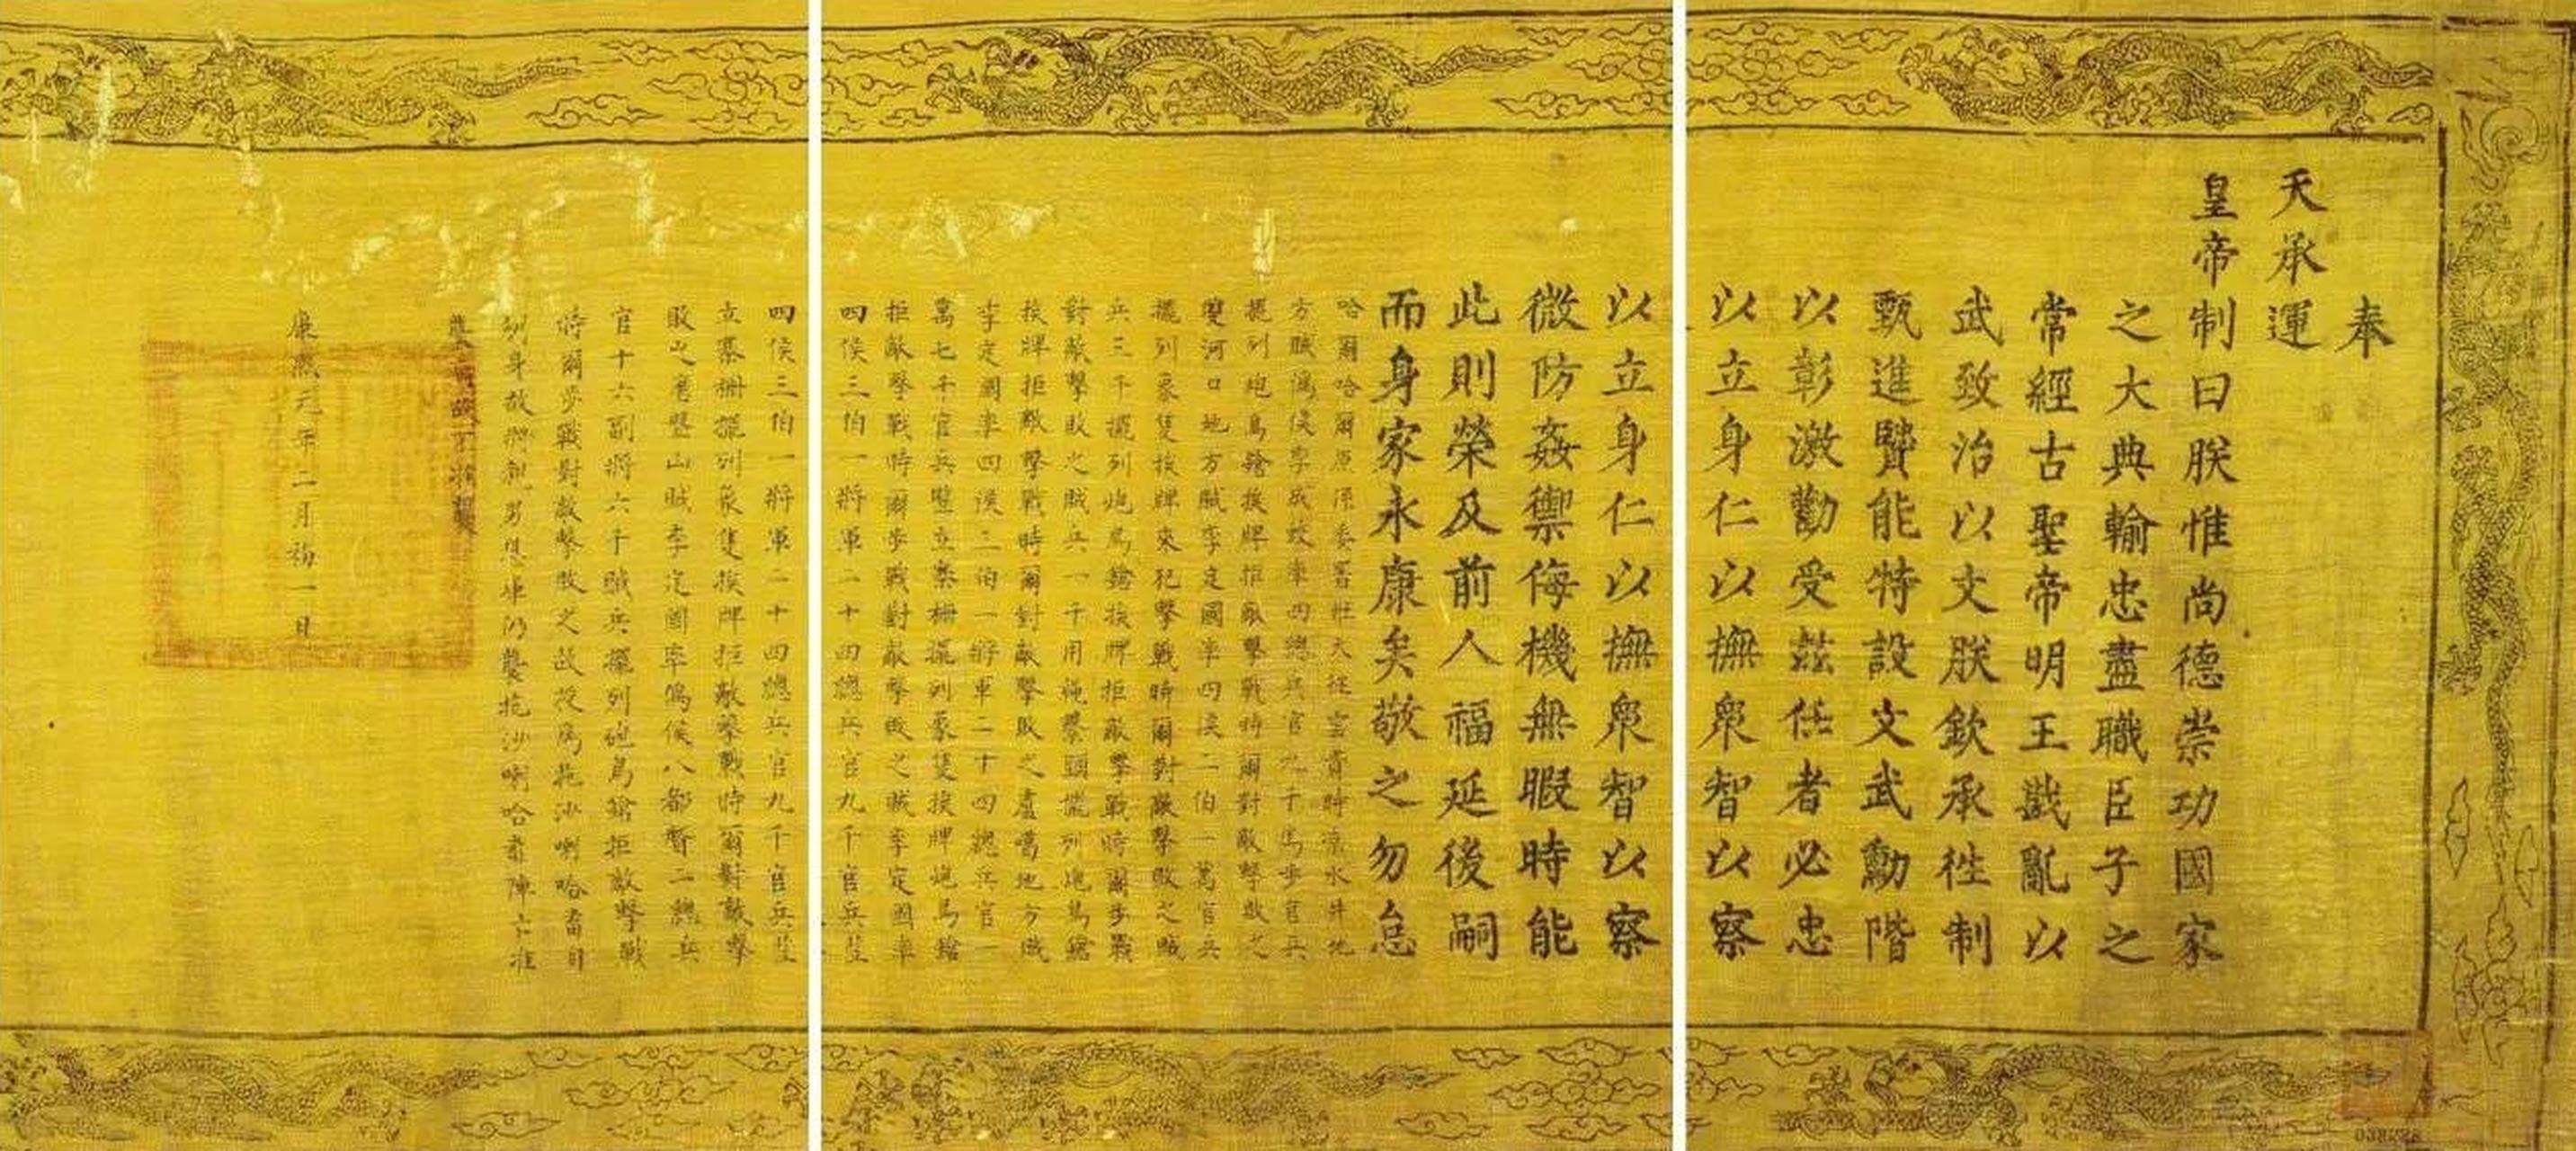 奉
天承運
皇帝制曰朕惟尚德崇功國家
之大典輸忠盡職臣子之
常經古聖帝明王戡亂以
武致治以文朕欽承徃制
甄進賢能特設文武勳階
以彰激勸受茲任者必忠
以立身仁以撫衆智以察
以立身仁以撫衆智以察
微防姦禦侮機無暇時能
此則榮及前人福延後嗣
而身家永康矣敬之勿怠
哈爾哈爾原係委署牡大征雲貴時涼水井地
方賊偽侯李成蛟率四總兵官九千馬步官兵
擺列炮鳥鎗挨牌拒敵擊戰時爾對敵擊敗之
雙河口地方賊李定國率四侯二伯一萬官兵
擺列象隻挨牌來犯擊戰時爾對敵擊敗之賊
兵三千擺列炮鳥鎗挨牌拒敵擊戰時爾步戰
對敵擊敗之賊兵一千用繩攀頭擺列炮鳥鎗
挨牌拒敵擊戰時爾對敵擊敗之蘆噶地方賊
李定國率四侯三伯一將軍二十四總兵官一
萬七千官兵豎立寨柵擺列象隻挨牌炮鳥鎗
拒敵擊戰時爾步戰對敵擊敗之賊李定國率
四侯三伯一將軍二十四總兵官九千官兵豎
四侯三伯一將軍二十四總兵官九千官兵豎
立寨柵擺列象隻挨牌拒敵擊戰時爾對敵擊
敗之磨盤山賊李定國率偽侯八都督二總兵
官十六副將六千賊兵擺列炮鳥鎗拒敵擊戰
時爾步戰對敵擊敗之故授為拖沙喇哈番自
身故將親男 仍襲拖沙喇哈番陣亡准
康熙元年二月初一日
038728